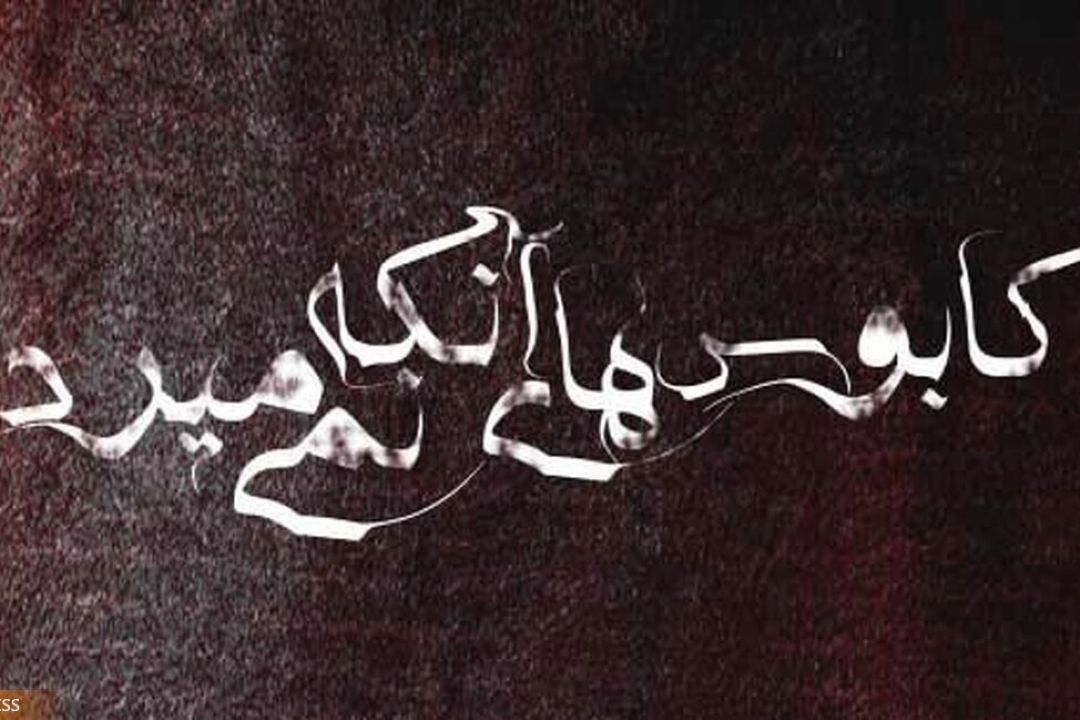 کابوس‌های آنکه نمی‌میرد
ESS